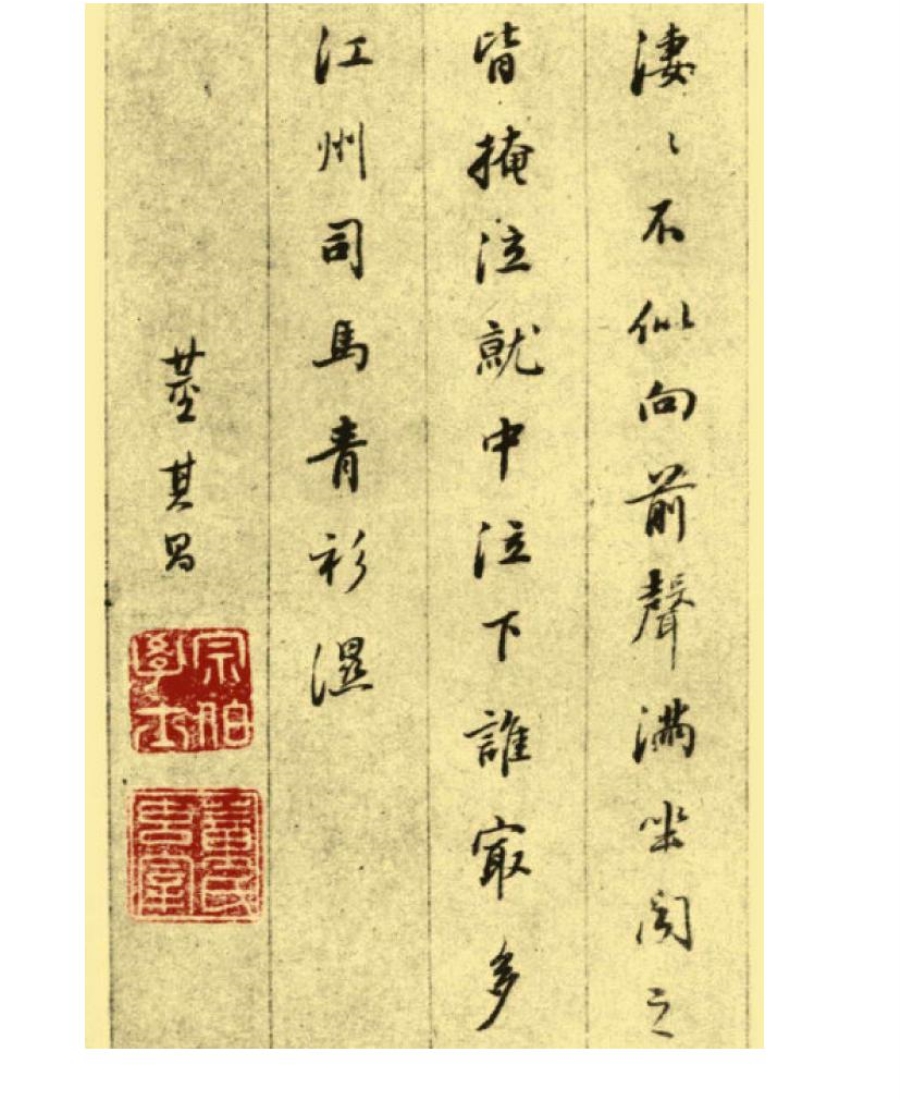 淒〻不似向前聲滿坐聞之
皆掩泣就中泣下誰㝡多
江州司馬青衫濕
董其昌
宗伯學士